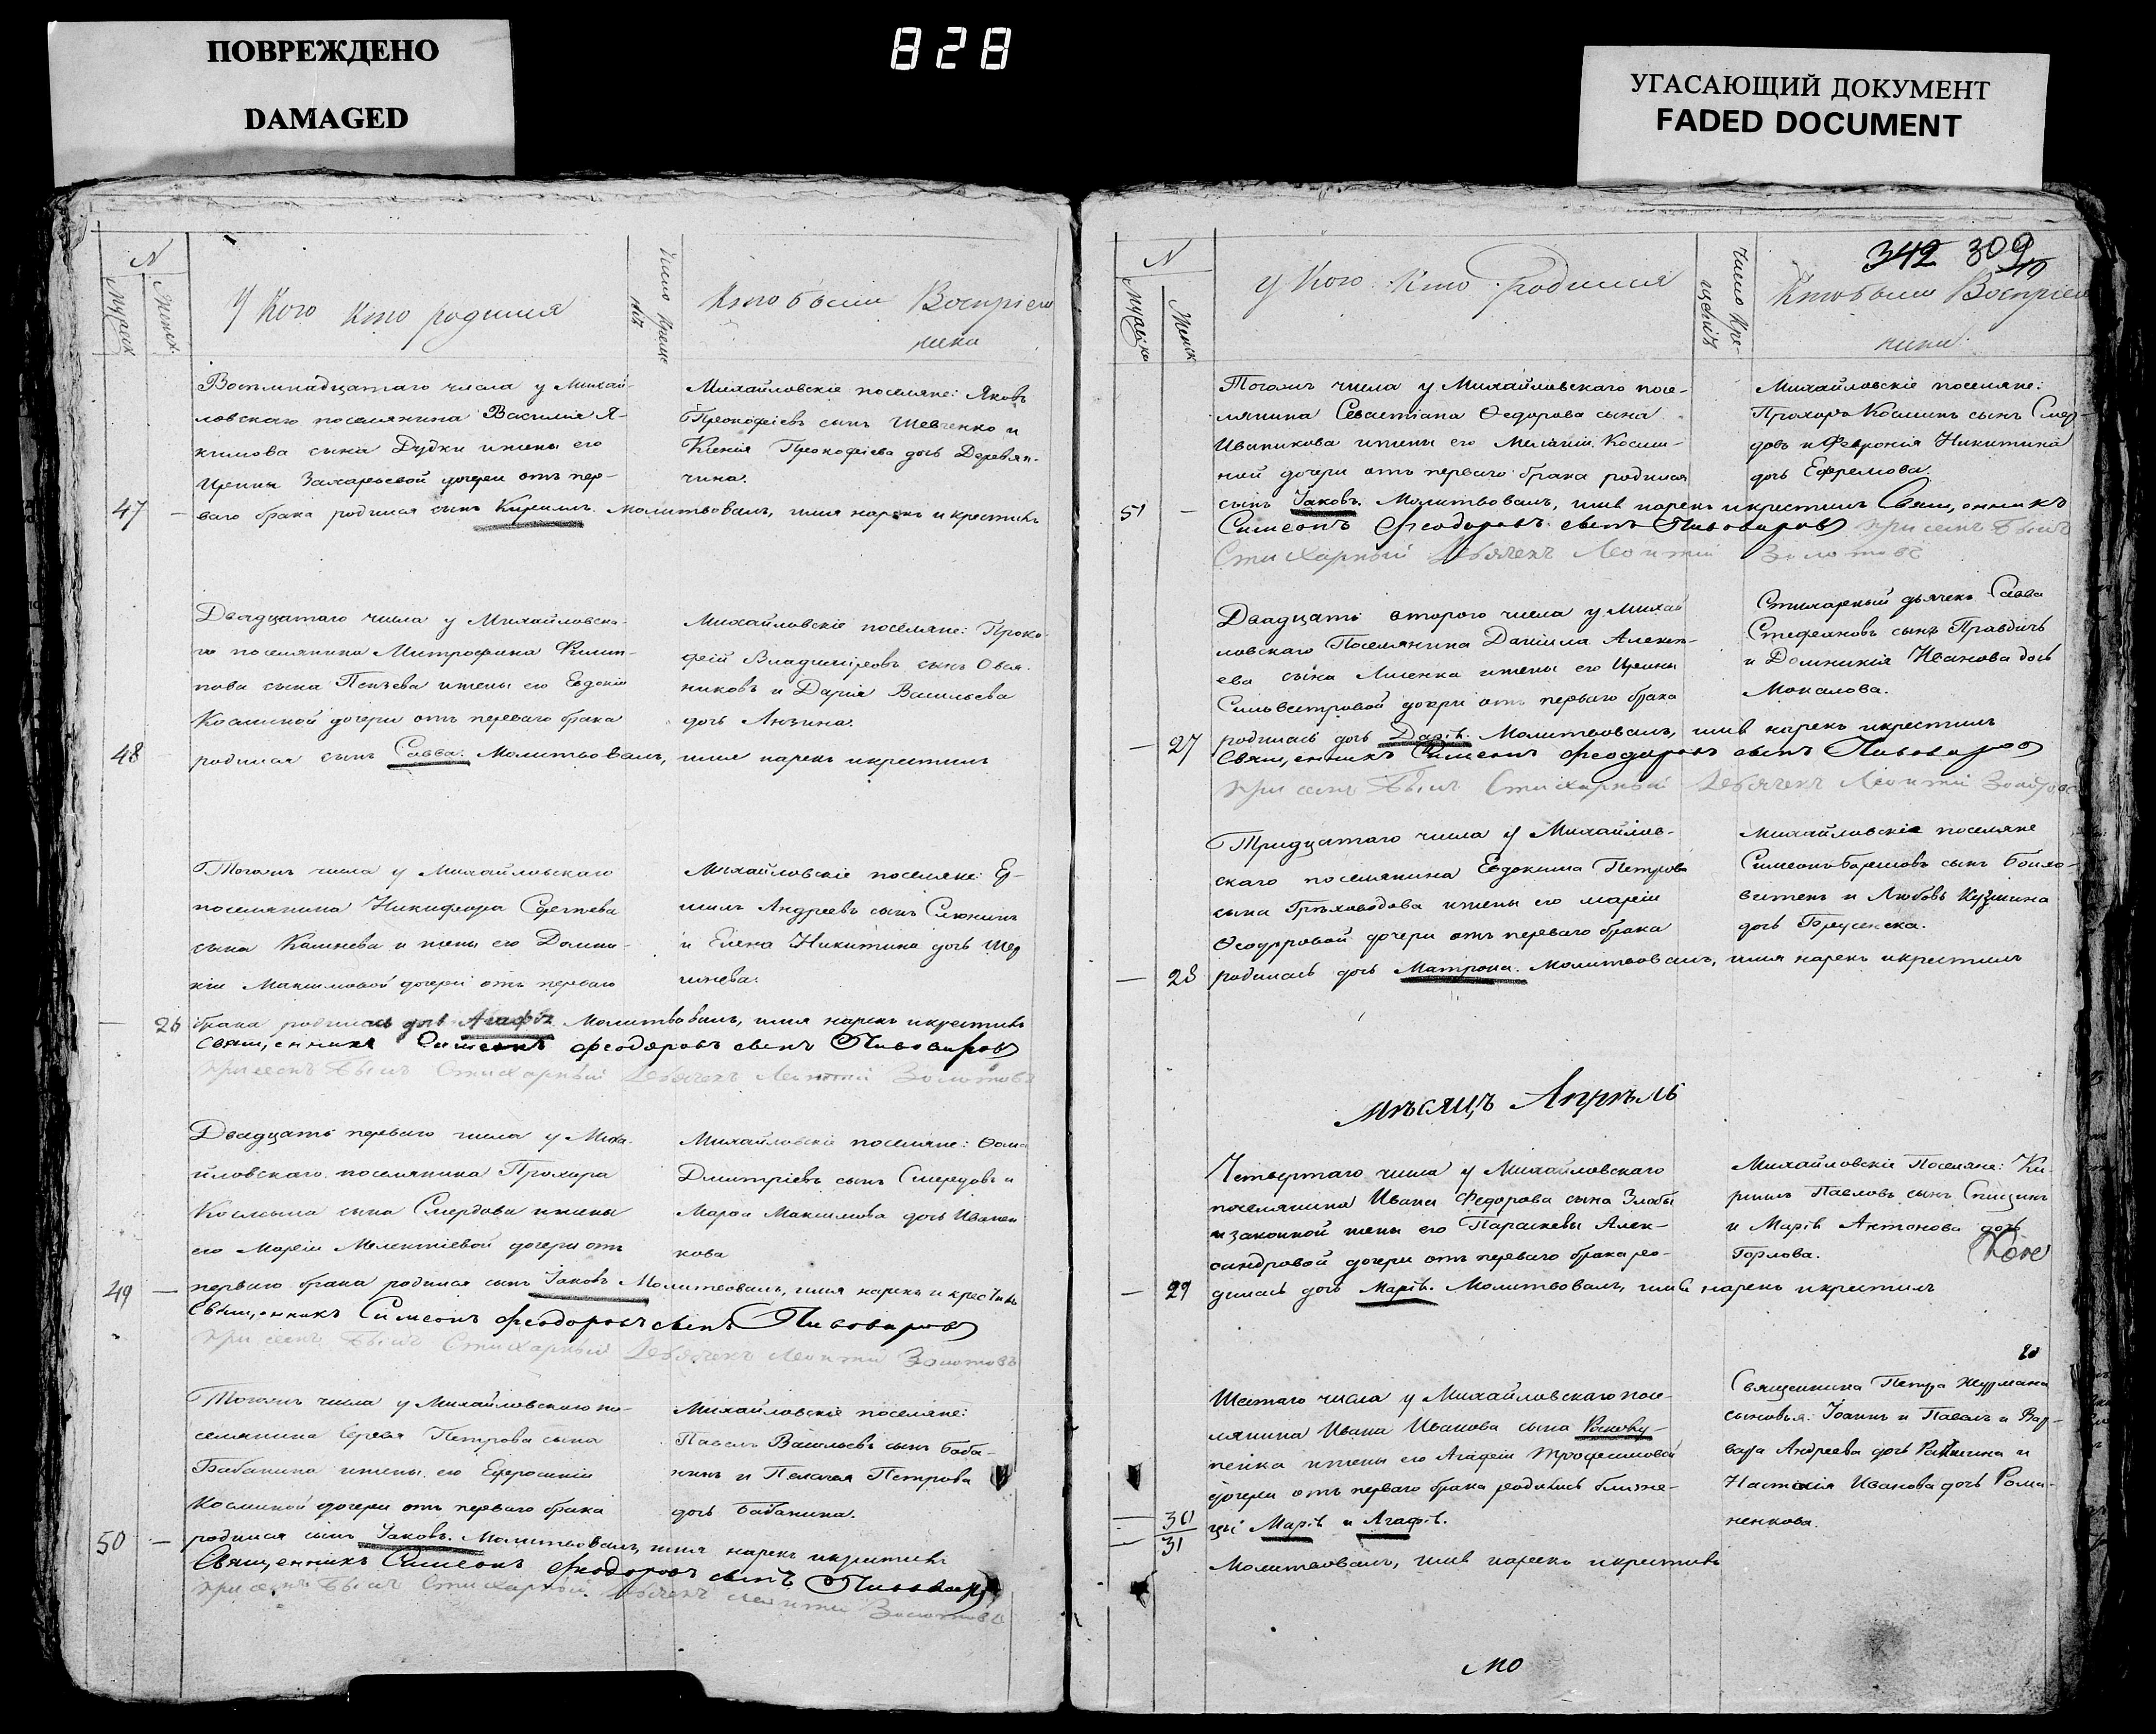 ПОВРЕЖДЕНО
DAMAGED
828
УГАСАЮЩИЙ ДОКУМЕНТ
FADED DOCUMENT
N
Мужеск
Женск.
У Кого Кто родился
Число Креще
нія
Кто были Воспріем
ники
Восемнадцатаго числа у Михай-
ловскаго поселянина Василія Я-
кимова сына Дудки и жены его
Ирины Захарьевой дочери отъ пер-
47 — ваго брака родился сынъ Кириллъ. Молитвовалъ, имя нарекъ и крестилъ
Михайловскіе поселяне: Яковъ
Прокофіевъ сынъ Шевченко и
Ксенія Прокофіева дочь Деревян-
чина.
Двадцатаго числа у Михайловска-
го поселянина Митрофана Филип-
пова сына Пензева и жены его Евдокіи
Косминой дочери отъ перваго брака
48 родился сынъ Савва. Молитвовалъ, имя нарекъ и крестилъ
Михайловскіе поселяне: Проко-
фій Владиміровъ сынъ Овсян-
никовъ и Дарія Васильева
дочь Лизина.
Тогожъ числа у Михайловскаго
поселянина Никифора Сергѣева
сына Камнева и жены его Домни-
кіи Максимовой дочери отъ перваго
— 26 брака родилась дочь Агафія Молитвовалъ, имя нарекъ и крестилъ
Священникъ Симеонъ Феодоровъ сынъ Пивоваровъ
при семъ былъ Стихарный Дьячекъ Леонтій Золотовъ
Михайловскіе поселяне: Ер-
милъ Андреевъ сынъ
и Елена Никитина дочь Шер
шнева.
Двадцать перваго числа у Миха-
йловскаго поселянина Прохора
Космына сына Смердова и жены
его Маріи Мелентіевой дочери отъ
49 — перваго брака родился сынъ Іаковъ Молитвовалъ, имя нарекъ и крестилъ
Священникъ Симеонъ Феодоровъ сынъ Пивоваровъ
при семъ былъ Стихарный Дьячекъ Леонтій Золотовъ
Михайловскіе поселяне: Ѳома
Дмитріевъ сынъ Смердовъ и
Марѳа Максимова дочь Иванни
кова
Тогожъ числа у Михайловскаго по-
селянина Сергѣя Петрова сына
Бабанина и жены его Ефросиніи
Косминой дочери отъ перваго брака
50 — родился сынъ Іаковъ. Молитвовалъ, имя нарекъ и крестилъ
Священникъ Симеонъ Феодоровъ сынъ Пивоваровъ
при семъ былъ Стихарный Дьячекъ Леонтій Золотовъ
Михайловскіе поселяне:
Павелъ Васильевъ сынъ Баба-
нинъ и Пелагея Петрова
дочь Бабанина.
342 309
N
Мужеска
Женск
У Кого Кто Родился
Число Кре-
щенія
Кто были Воспріем
ники
Тогожъ числа у Михайловскаго посе-
лянина Севастіана Ѳедорова сына
Иванникова и жены его Меланіи Косми-
ной дочери отъ перваго брака родился
51 — сынъ Іаковъ. Молитвовалъ, имя нарекъ и крестилъ Священникъ
Симеонъ Феодоровъ сынъ Пивоваровъ при семъ былъ
Стихарный Дьячекъ Леонтій Золотовъ
Михайловскіе поселяне:
Прохоръ Косминъ сынъ Смер-
довъ и Февронія Никитина
дочь Ефремова.
Двадцать втораго числа у Михай
ловскаго Поселянина Даніила Алексѣ-
ева сына Лисенка и жены его Ирины
Сильвестровой дочери отъ перваго брака
— 27 родилась дочь Дарія. Молитвовалъ, имя нарекъ и крестилъ
Священникъ Симеонъ Феодоровъ сынъ Пивоваровъ
при семъ былъ Стихарный Дьячекъ Леонтій Золотовъ
Стихарный дьячекъ Савва
Стефановъ сынъ Правдичъ
и Домникія Иванова дочь
Мокалова.
Тридцатаго числа у Михайлов-
скаго поселянина Евдокима Петрова
сына Грѣховодова и жены его Маріи
Ѳеодоровой дочери отъ перваго брака
— 28 родилась дочь Матрона. Молитвовалъ, имя нарекъ и крестилъ
Михайловскіе поселяне
Симеонъ сынъ
и Любовь Кузмина
дочь
мѣсяцъ Апрѣль
Четвертаго числа у Михайловскаго
поселянина Ивана Федорова сына Злабы
и законной жены его Параскевы Алек-
сандровой дочери отъ перваго брака ро-
— 29 дилась дочь Марія. Молитвовалъ, имя нарекъ и крестилъ
Михайловскіе Поселяне: Ки-
рилъ Павловъ сынъ Спицинъ
и Марія Антонова дочь
Горлова.
Шестаго числа у Михайловскаго посе-
лянина Ивана Иванова сына
и жены его Агафіи Трофимовой
дочери отъ перваго брака родились близне-
— 30 цы Марія и Агафія.
— 31
Молитвовалъ, имя нарекъ и крестилъ
Священника Петра
сыновья: Іоаннъ и Павелъ и Вар-
вара Андреева дочь и
Настасія Иванова дочь Рома-
ненкова.